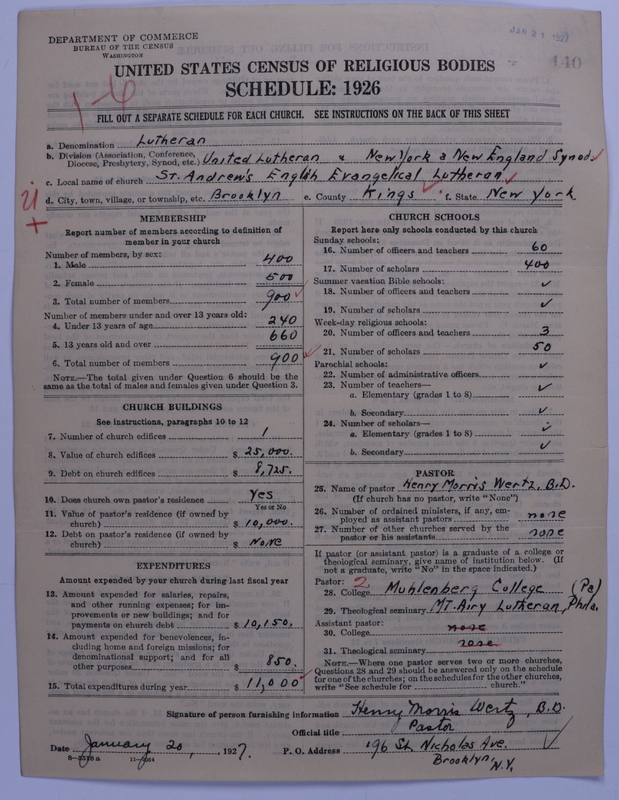 DEPARTMENT OF COMMERCE
BUREAU OF THE CENSUS
WASHINGTON
JAN 21 1927
140
UNITED STATES CENSUS OF RELIGIOUS BODIES
SCHEDULE: 1926
1-6
FILL OUT A SEPARATE SCHEDULE FOR EACH CHURCH. SEE INSTRUCTIONS ON THE BACK OF THIS SHEET
a. Denomination Lutheran
b. Division (Association, Conference, Diocese, Presbytery, Synod, etc.) United Lutheran & New York & New England Synod
c. Local name of church St. Andrew's English Evangelical Lutheran
d. City, town, village, or township, etc. Brooklyn e. County Kings f. State New York
MEMBERSHIP
Report number of members according to definition of
member in your church
Number of members, by sex:
1. Male 400
2. Female 500
3. Total number of members 900
Number of members under and over 13 years old:
4. Under 13 years of age 240
5. 13 years old and over 660
6. Total number of members 900
NOTE.—The total given under Question 6 should be the
same as the total of males and females given under Question 3.
CHURCH BUILDINGS
See instructions, paragraphs 10 to 12
7. Number of church edifices 1
8. Value of church edifices $ 25,000.
9. Debt on church edifices $ 8,725.
10. Does church own pastor's residence Yes
Yes or No
11. Value of pastor's residence (if owned by
church) $ 10,000.
12. Debt on pastor's residence (if owned by
church) $ None
EXPENDITURES
Amount expended by your church during last fiscal year
13. Amount expended for salaries, repairs,
and other running expenses; for im-
provements or new buildings; and for
payments on church debt $ 10,150.
14. Amount expended for benevolences, in-
cluding home and foreign missions; for
denominational support; and for all
other purposes $ 850.
15. Total expenditures during year $ 11,000
CHURCH SCHOOLS
Report here only schools conducted by this church
Sunday schools:
16. Number of officers and teachers 60
17. Number of scholars 400
Summer vacation Bible schools:
18. Number of officers and teachers ✓
19. Number of scholars ✓
Week-day religious schools:
20. Number of officers and teachers 3
21. Number of scholars 50
Parochial schools:
22. Number of administrative officers ✓
23. Number of teachers—
a. Elementary (grades 1 to 8) ✓
b. Secondary ✓
24. Number of scholars—
a. Elementary (grades 1 to 8) ✓
b. Secondary ✓
PASTOR
25. Name of pastor Henry Morris Wertz, B.D.
(If church has no pastor, write "None")
26. Number of ordained ministers, if any, em-
ployed as assistant pastors none
27. Number of other churches served by the
pastor or his assistants none
If pastor (or assistant pastor) is a graduate of a college or
theological seminary, give name of institution below. (If
not a graduate, write "No" in the space indicated.)
Pastor: 2
28. College Muhlenberg College (Pa)
29. Theological seminary Mt. Airy Lutheran, Phila.
Assistant pastor:
30. College none
31. Theological seminary none
NOTE.—Where one pastor serves two or more churches,
Questions 28 and 29 should be answered only on the schedule
for one of the churches; on the schedules for the other churches,
write "See schedule for church."
Signature of person furnishing information Henry Morris Wertz, B.D.
Official title Pastor
Date January 20, 1927. P. O. Address 196 St. Nicholas Ave.
Brooklyn, N.Y.